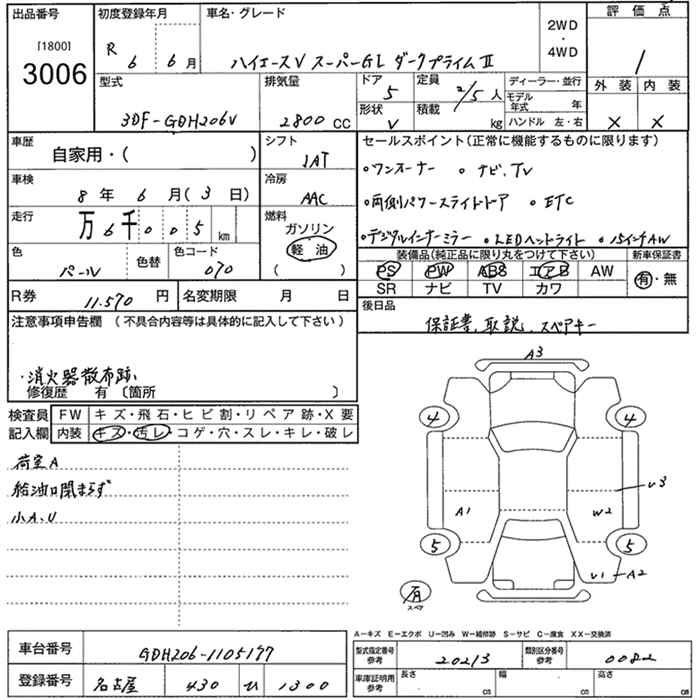 出品番号
[1800]
3006
初度登録年月
R 6 6月
車名・グレード
ハイエースV スーパーGL ダークプライムⅡ
2WD
・
4WD
評価点
1
外装 内装
× ×
型式
3DF-GDH206V
排気量
2800 CC
ドア
5
形状
V
定員
2/5人
積載
kg
ディーラー・並行
モデル年式 年
ハンドル 左・右
車歴
自家用・( )
シフト
1AT
車検
8年 6月(3日)
冷房
AAC
走行
万6千005 km
燃料
ガソリン
軽油
( )
色
パール
色替
色コード
070
R券 11,570円
名変期限 月 日
セールスポイント(正常に機能するものに限ります)
・ワンオーナー ・ナビ、TV
・両側パワースライドドア ・ETC
・デジタルインナーミラー ・LEDヘッドライト ・15インチAW
装備品(純正品に限り丸をつけて下さい)
PS PW ABS エアB AW
SR ナビ TV カワ
新車保証書
有・無
後日品
保証書、取説、スペアキー
注意事項申告欄 (不具合内容等は具体的に記入して下さい)
・消火器散布跡
修復歴 有 〔箇所 〕
検査員記入欄
FW キズ・飛石・ヒビ割・リペア跡・X要
内装 キズ・汚レ・コゲ・穴・スレ・キレ・破レ
荷室A
給油口閉まらず
小A、U
A3
4 4
U3
A1 W2
5 5
U1 A2
有
スペア
A−キズ E−エクボ U−凹み W−補修跡 S−サビ C−腐食 XX−交換済
車台番号 GDH206-1105177
登録番号 名古屋 430 ひ 1300
型式指定番号参考 20213
類別区分番号参考 0082
車庫証明用参考 長さ cm 幅 cm 高さ cm